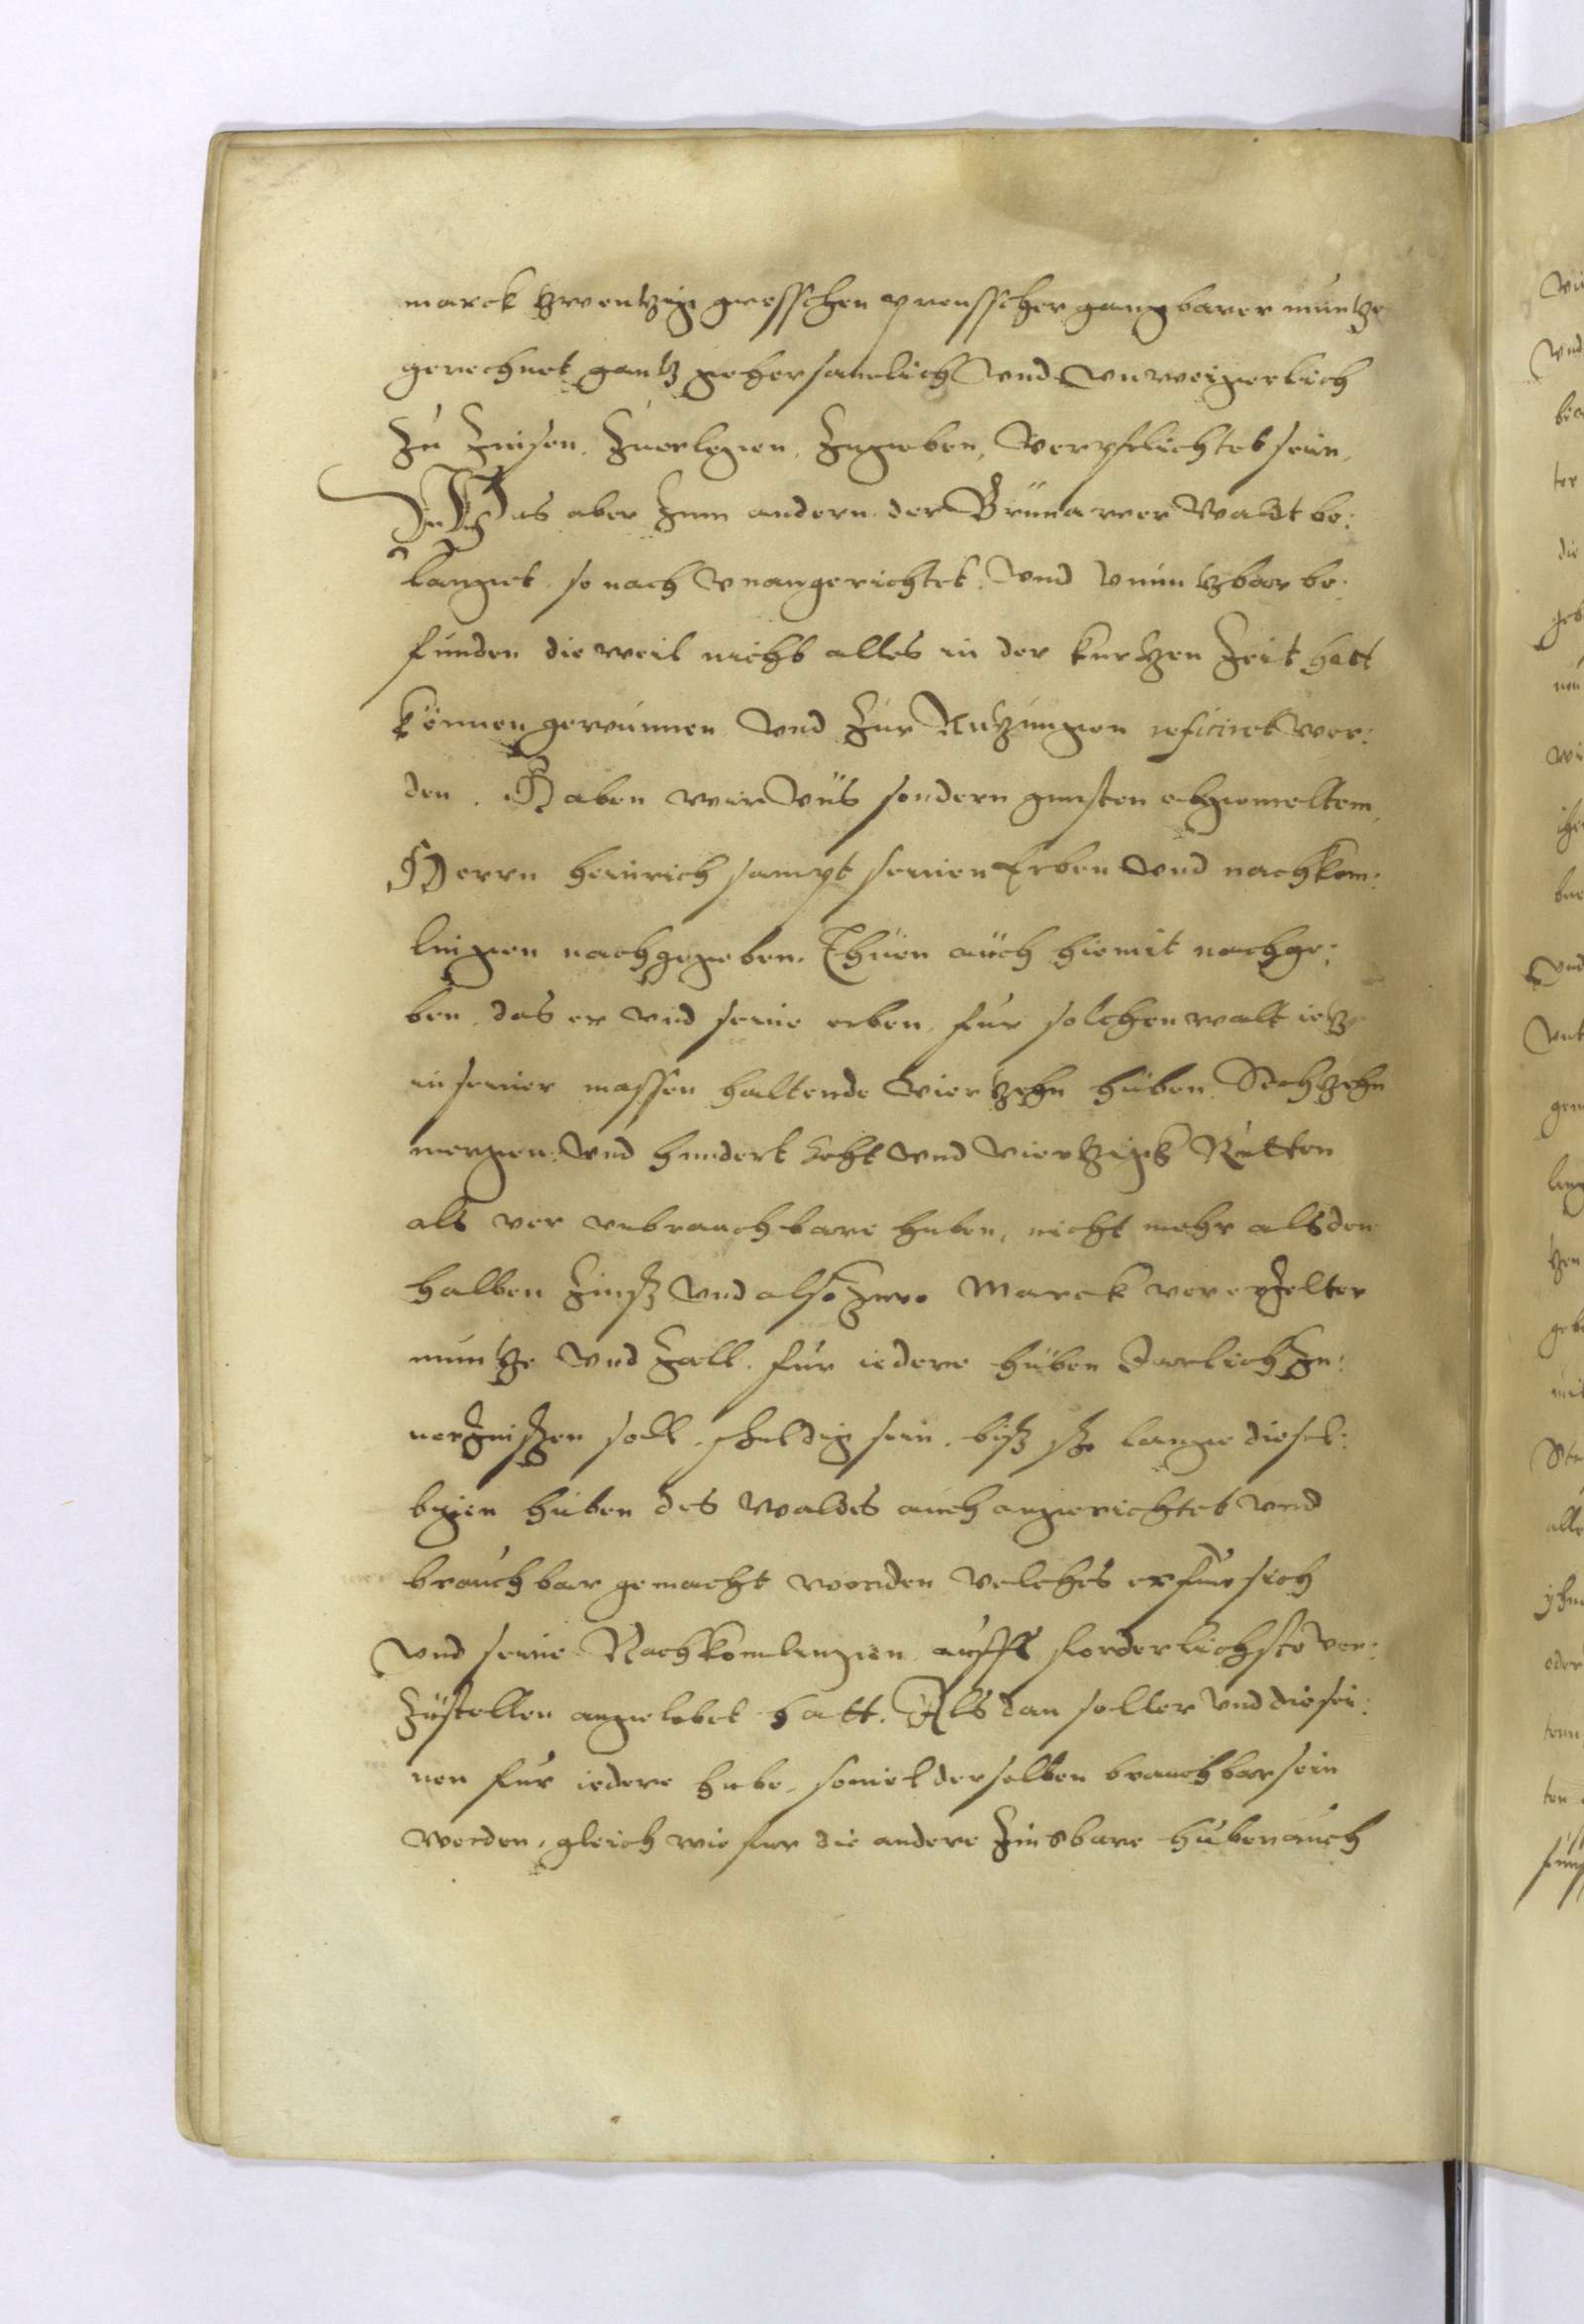 marck zwentzig grosschen preusscher gangbarer muntze
gerechnet gantz gehorsamlich vnd vnweigerlich
Zu Zinsen, Zuerlegen, Zugeben, verpflichtet sein,
Was aber Zum andern der Grünawer Waldt be:
langet so nach vnangerichtet, vnd vnnutzbar be:
funden die weil nicht alles in der kurtzen Zeit hatt
können gewunnen vnd Zur Nutzungen reficiret wer:
den. Haben wir aus sondern gunsten obgemeltem,
Herrn heinrich sampt seinen Erben vnd nachkom:
lingen nachgegeben. Thuen auch hiemit nachge:
ben, das er vnd seine erben, fur solchen walt ietz
in seiner massen haltende viertzehn huben, Sechtzehn
morgen, vnd hundert Acht vnd viertzigk Rutten
als vor vnbrauchbare huben, nicht mehr als den
halben Zinß vnd also Zwo Marck vorerzelter
muntze vnd Zall, fur iedere huben Jarlich Zu:
uorZinßen soll, schuldig sein, biß so lange diesel:
bigen huben des Waldes auch angerichtet vnd
brauchbar gemacht worden welches er fur sich
vnd seine Nachkomlingen auffs forderlichste vor:
Zustellen angelobet hatt. Als dan soll er vnd die sei:
nen fur iedere hube, souiel derselben brauchbar sein
werden, gleich wie fur die andere Zinsbare huben auch